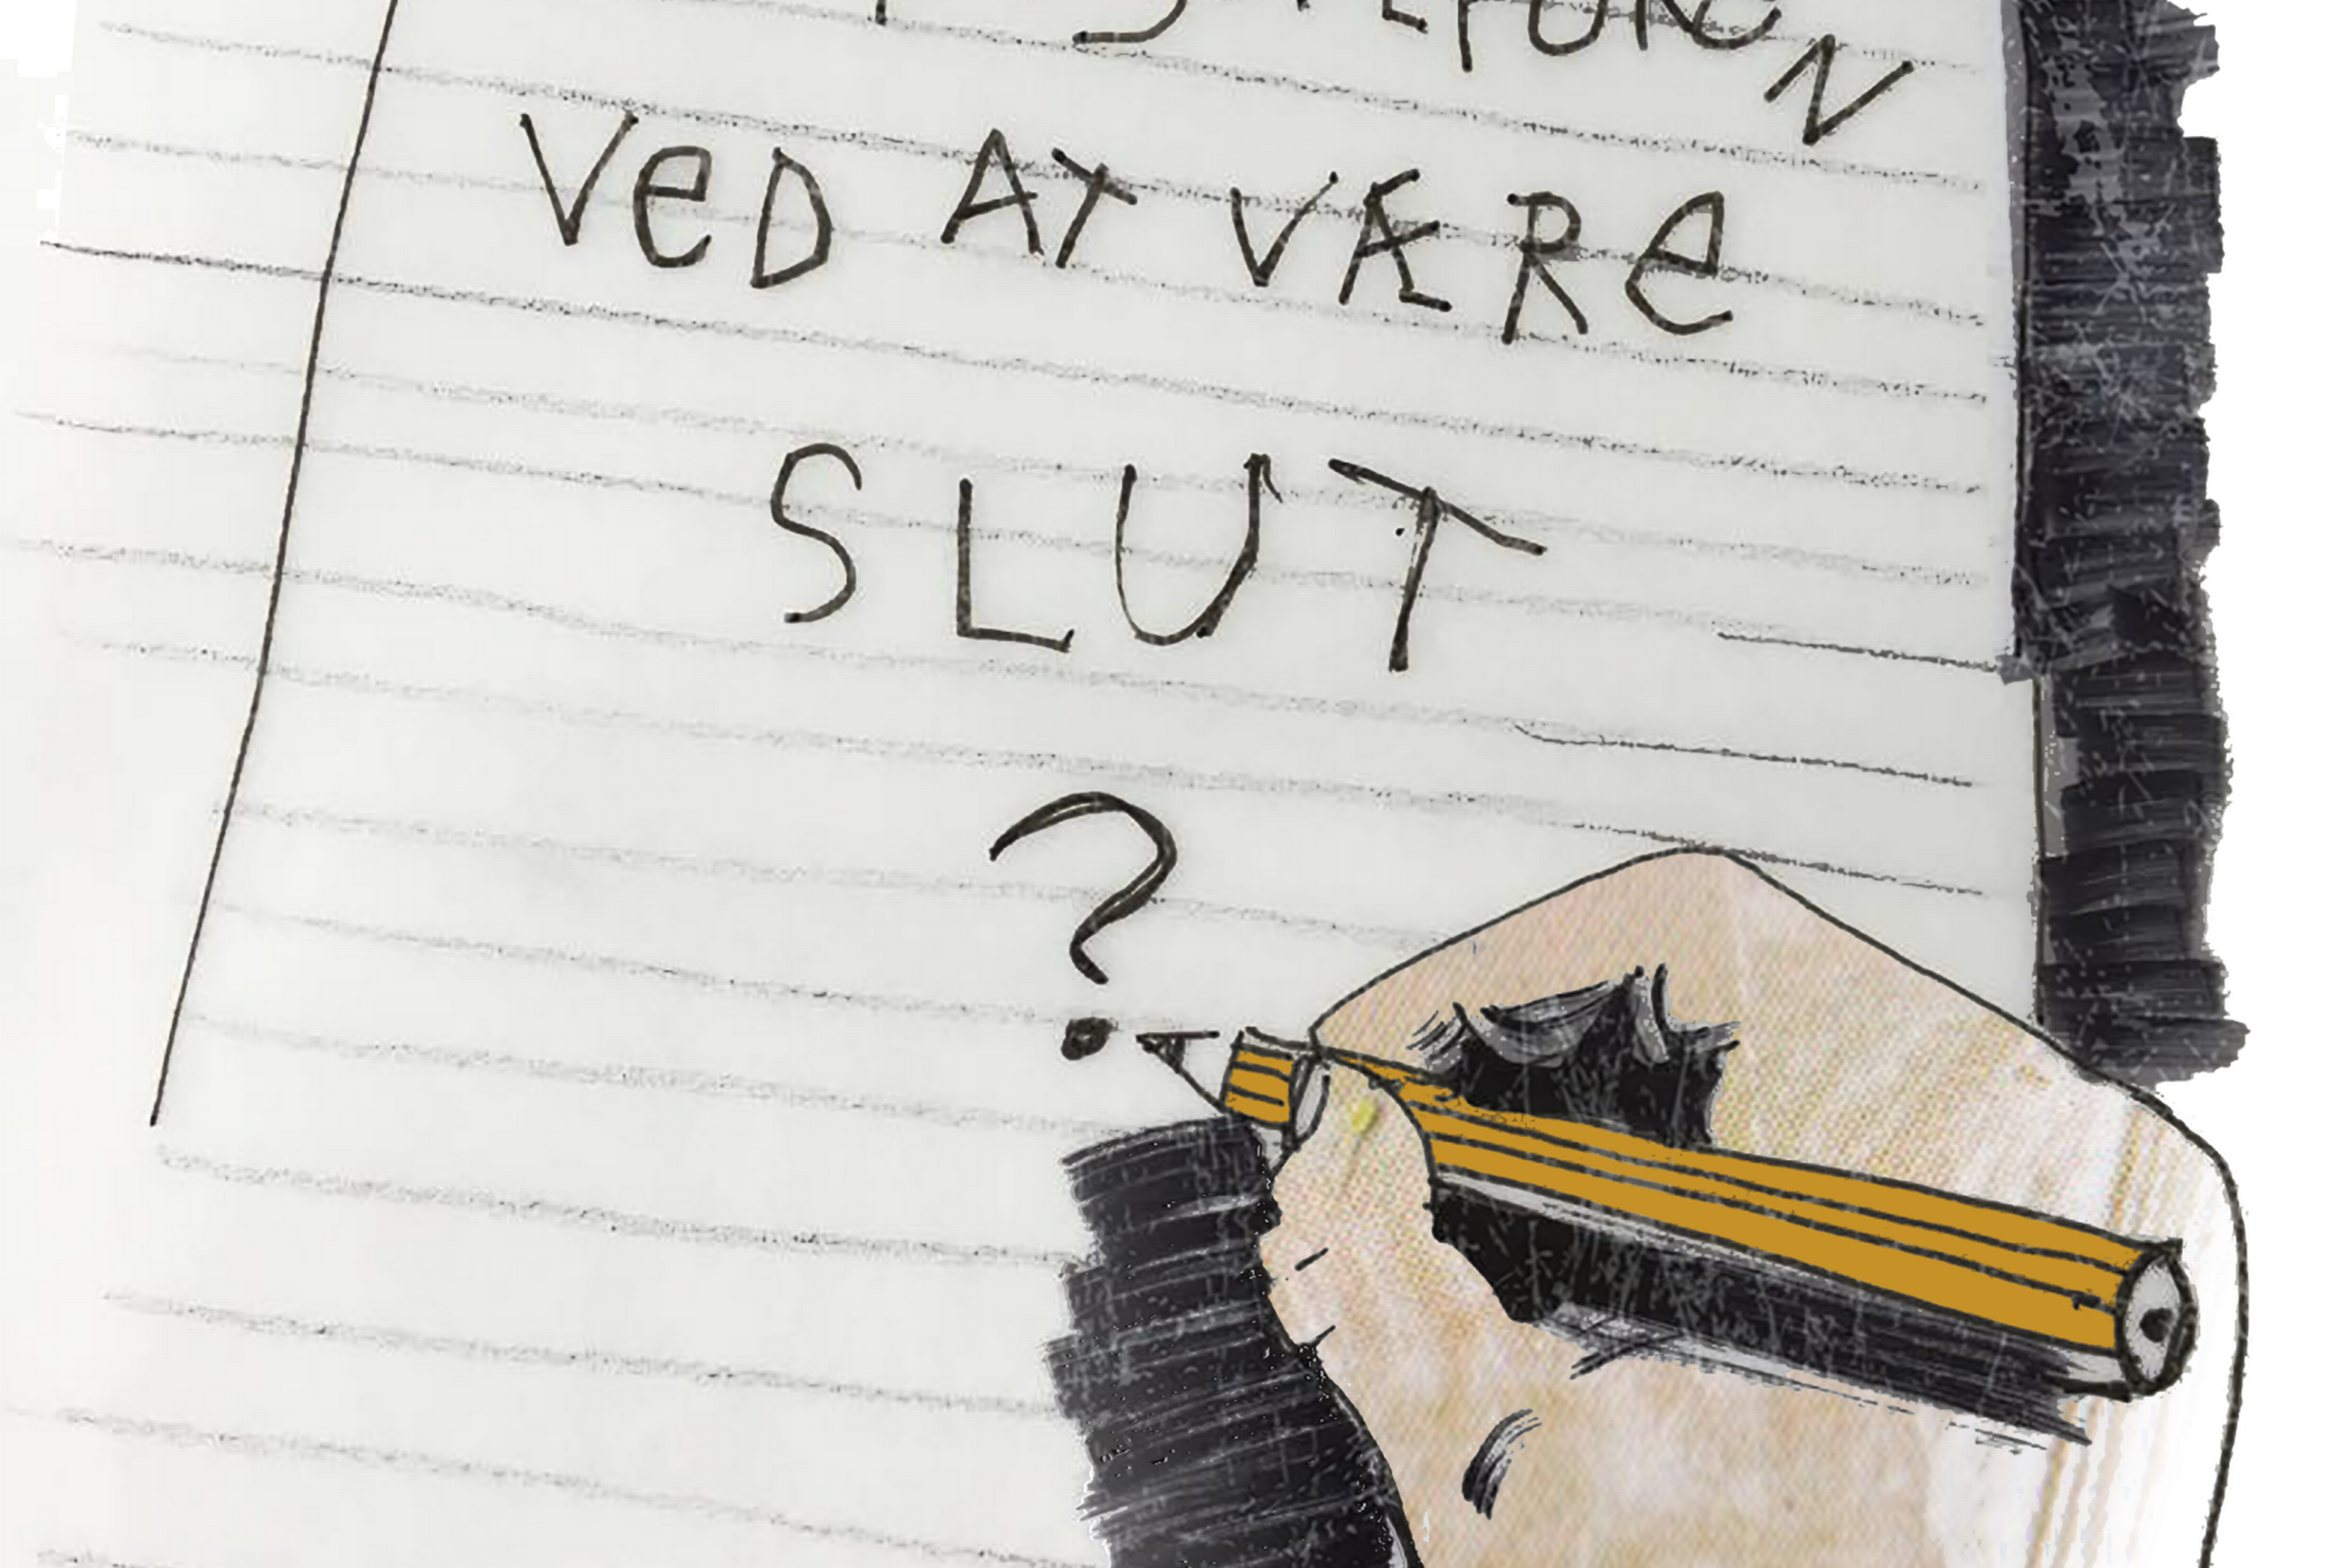 VeD AT VÆRe
SLUT
?